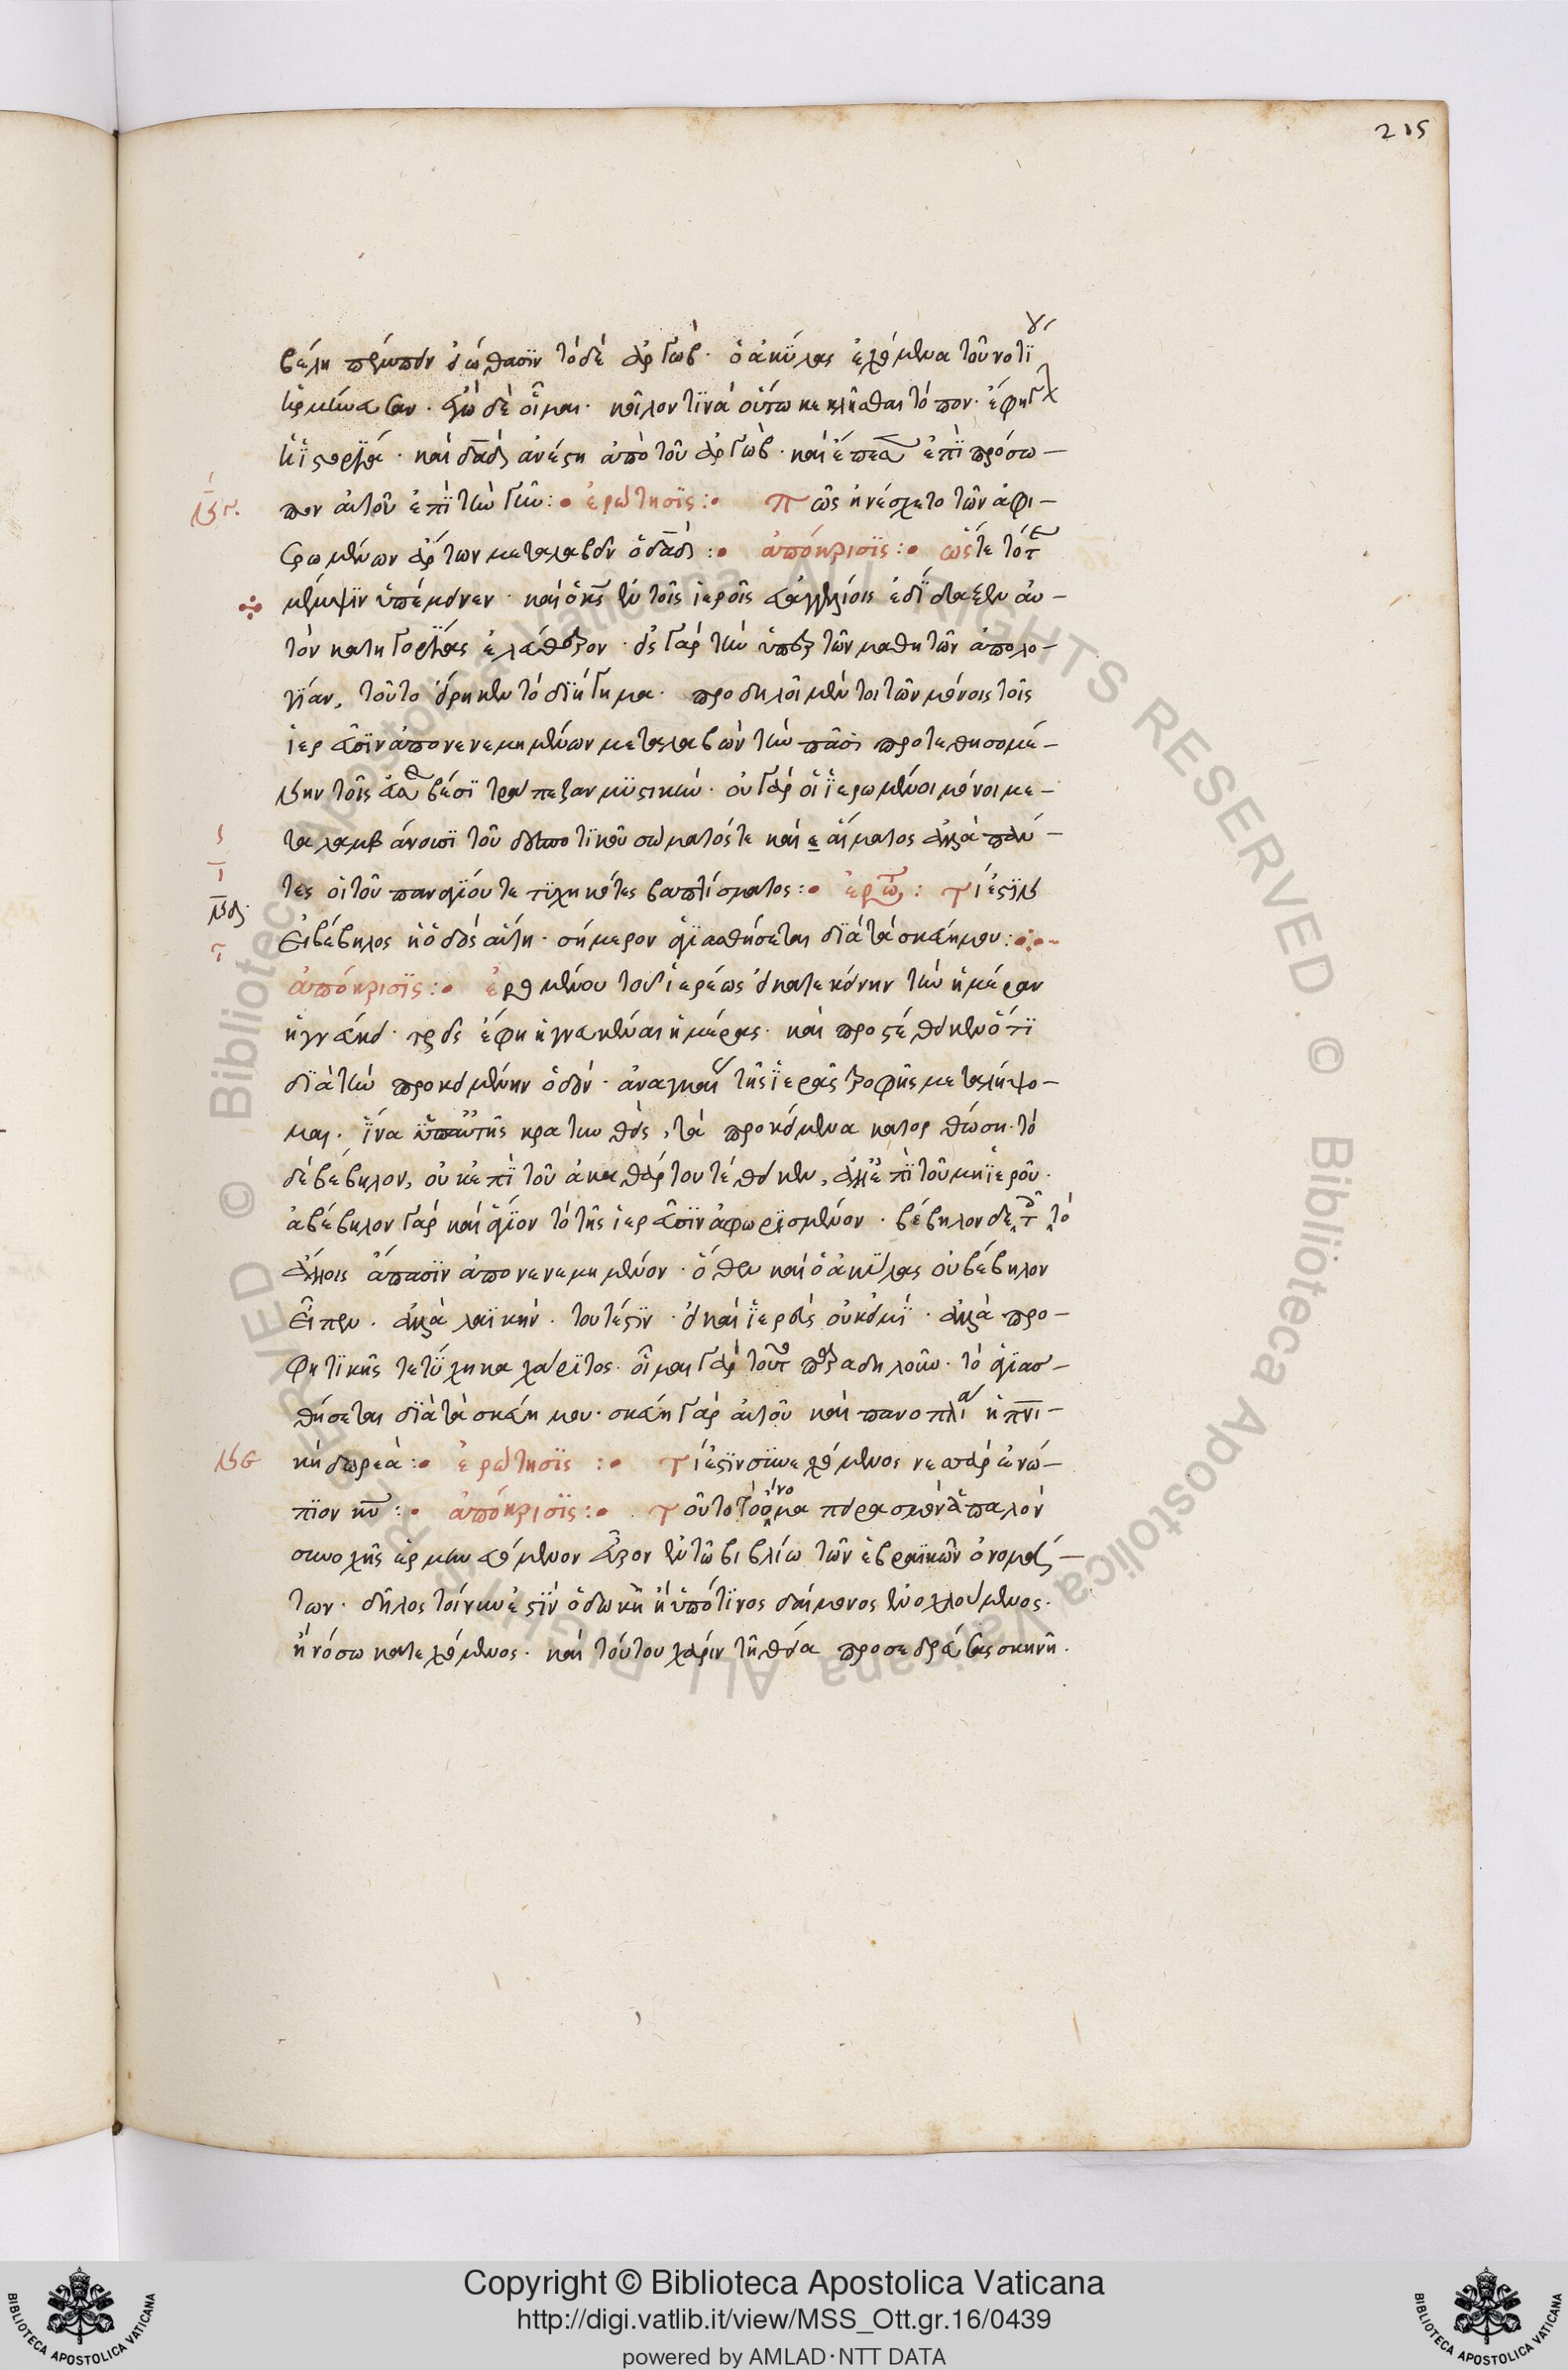 215
βέλη πέμπειν εἰώθασιν τὸ δὲ ἀργώβ· ὁ ἀκύλας ἐχόμενα τοῦ νότου
ἡρμήνευσεν· ἐγὼ δὲ οἶμαι· κοῖλον τινὰ οὕτω κεκλῆσθαι τόπον· ἔφη γὰρ
ἡ ἱστορία· καὶ δᾱδ ἀνέστη ἀπὸ τοῦ ἀργώβ· καὶ ἔπεσεν ἐπὶ πρόσω-
πον αὐτοῦ ἐπὶ τὴν γῆν:· ἐρώτησις:· πῶς ἠνέσχετο τῶν ἀφι-
νγ.
ερωμένων ἄρτων μεταλαβεῖν ὁ δᾱδ:· ἀπόκρισις:· ὥστε τότε
μέμψιν ὑπέμεινεν· καὶ ὁ κς ἐν τοῖς ἱεροῖς εὐαγγελίοις ἐδίδαξεν αὐ-
τὸν κατηγορίας ἐλεύθερον· εἰς γὰρ τὴν ὑπὲρ τῶν μαθητῶν ἀπολο-
γίαν, τοῦτο εἴρηκεν τὸ διήγημα· προδηλοῖ μέντοι τῶν μόνοις τοῖς
ἱερεῦσιν ἀπονενεμημένων μεταλαβὼν τὴν πᾶσι προτεθησομέ-
νην τοῖς εὐσεβέσι τράπεζαν μυστικήν· οὐ γὰρ οἱ ἱερωμένοι μόνοι με-
ταλαμβάνουσι τοῦ δεσποτικοῦ σώματός τε καὶ αἵματος ἀλλὰ πάν-
τες οἱ τοῦ παναγίου τετυχηκότες βαπτίσματος:· ἐρώτ: τί ἐστιν
νδ.
εἰ βέβηλος ἡ ὁδὸς αὕτη· σήμερον ἁγιασθήσεται διὰ τὰ σκεύη μου:·
ἀπόκρισις:· ἐρομένου τοῦ ἱερέως εἰ κατ' ἐκείνην τὴν ἡμέραν
ἥγνευκε· τρεῖς ἔφη ἡγνευκέναι ἡμέρας· καὶ προστέθεικεν ὅτι
διὰ τὴν προκειμένην ὁδόν· ἀναγκαίως τῆς ἱερᾶς τροφῆς μεταλήψο-
μαι· ἵνα ὑπ' αὐτῆς κρατυνθεὶς, τὰ προκείμενα κατορθώσω· τὸ
δὲ βέβηλον, οὐκ ἐπὶ τοῦ ἀκαθάρτου τέθεικεν, ἀλλ' ἐπὶ τοῦ μὴ ἱεροῦ·
ἀβέβηλον γὰρ καὶ ἅγιον τὸ τῆς ἱερεῦσιν ἀφωρισμένον· βέβηλον δὲ τὸ
ἄλλοις ἅπασιν ἀπονενεμημένον· ὅθεν καὶ ὁ ἀκύλας οὐ βέβηλον
εἶπεν· ἀλλὰ λαϊκήν· τουτέστιν· εἰ καὶ ἱερεὺς οὐκ εἰμί· ἀλλὰ προ-
φητικῆς τετύχηκα χάριτος· οἶμαι γὰρ τοῦτο παραδηλοῦν· τὸ ἁγιασ-
θήσεται διὰ τὰ σκεύη μου· σκεύη γὰρ αὐτοῦ καὶ πανοπλία ἡ πνι-
κὴ δωρεά:· ἐρώτησις:· τί ἐστιν συνεχόμενος νεσσὰρ ἐνώ-
νε
πιον κυ:· ἀπόκρισις:· τοῦτο τὸ ὄνομα πειρασμὸν ἁπαλὸν
συνοχῆς ἑρμηνευόμενον εὗρον ἐν τῶ βιβλίω τῶν ἑβραϊκῶν ὀνομά-
των· δῆλος τοίνυν ἐστὶν ὁ δωὴκ ἢ ὑπό τινος δαίμονος ἐνοχλούμενος·
ἢ νόσω κατεχόμενος· καὶ τούτου χάριν τῆ θεία προσεδρεύσας σκηνῆ·
Copyright © Biblioteca Apostolica Vaticana
http://digi.vatlib.it/view/MSS_Ott.gr.16/0439
powered by AMLAD·NTT DATA